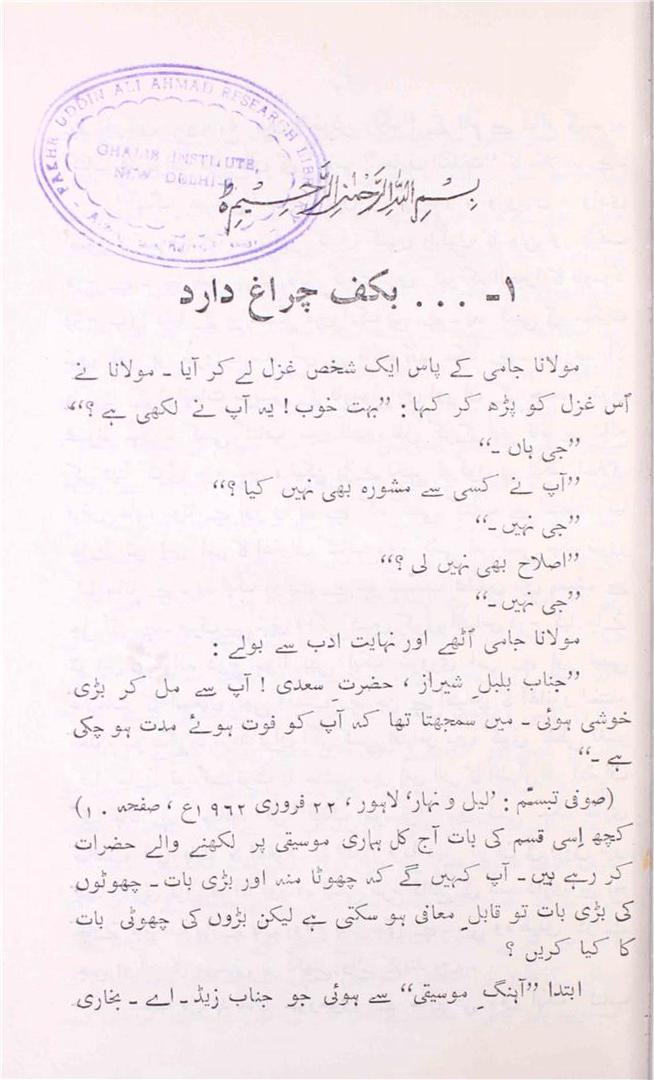 FAKHR UDDIN ALI AHMAD RESEARCH LIBRARY
GHALIB INSTITUTE,
NEW DELHI-
بِسْمِ اللّٰہِ الرَّحْمٰنِ الرَّحِیْمِ ط
۱۔ ... بکف چراغ دارد
مولانا جامی کے پاس ایک شخص غزل لے کر آیا ۔ مولانا نے
اُس غزل کو پڑھ کر کہا : ”بہت خوب ! یہ آپ نے لکھی ہے ؟“
”جی ہاں ۔“
”آپ نے کسی سے مشورہ بھی نہیں کیا ؟“
”جی نہیں ۔“
”اصلاح بھی نہیں لی ؟“
”جی نہیں ۔“
مولانا جامی اُٹھے اور نہایت ادب سے بولے :
”جناب بلبلِ شیراز ، حضرتِ سعدی ! آپ سے مل کر بڑی
خوشی ہوئی ۔ میں سمجھتا تھا کہ آپ کو فوت ہوئے مدت ہو چکی
ہے ۔“
(صوفی تبسّم : ’لیل و نہار‘ لاہور ، ۲۲ فروری ۱۹۶۲ع ، صفحہ ۱۰)
کچھ اِسی قسم کی بات آج کل ہماری موسیقی پر لکھنے والے حضرات
کر رہے ہیں ۔ آپ کہیں گے کہ چھوٹا منہ اور بڑی بات ۔ چھوٹوں
کی بڑی بات تو قابلِ معافی ہو سکتی ہے لیکن بڑوں کی چھوٹی بات
کا کیا کریں ؟
ابتدا ”آہنگِ موسیقی“ سے ہوئی جو جناب زیڈ ۔ اے ۔ بخاری